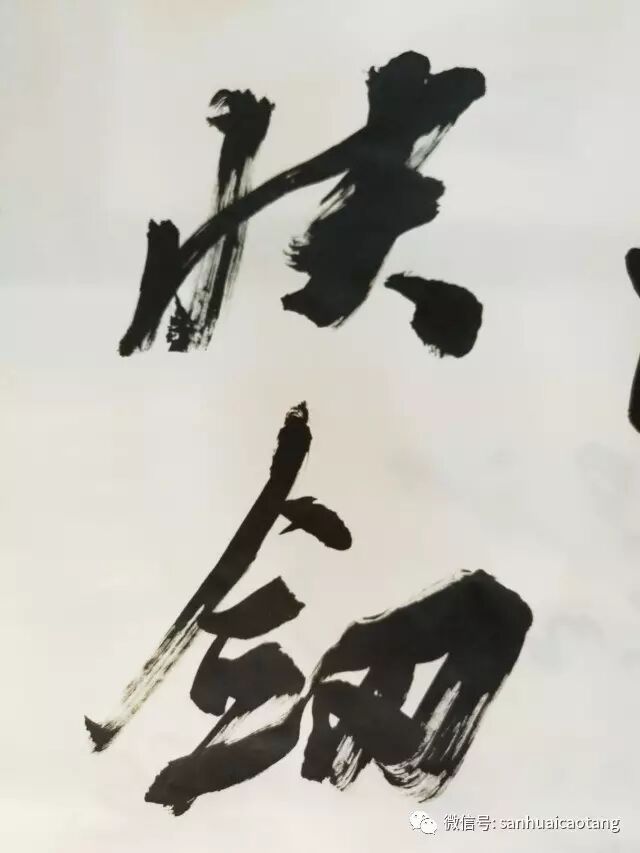 快劍
微信号: sanhuaicaotang